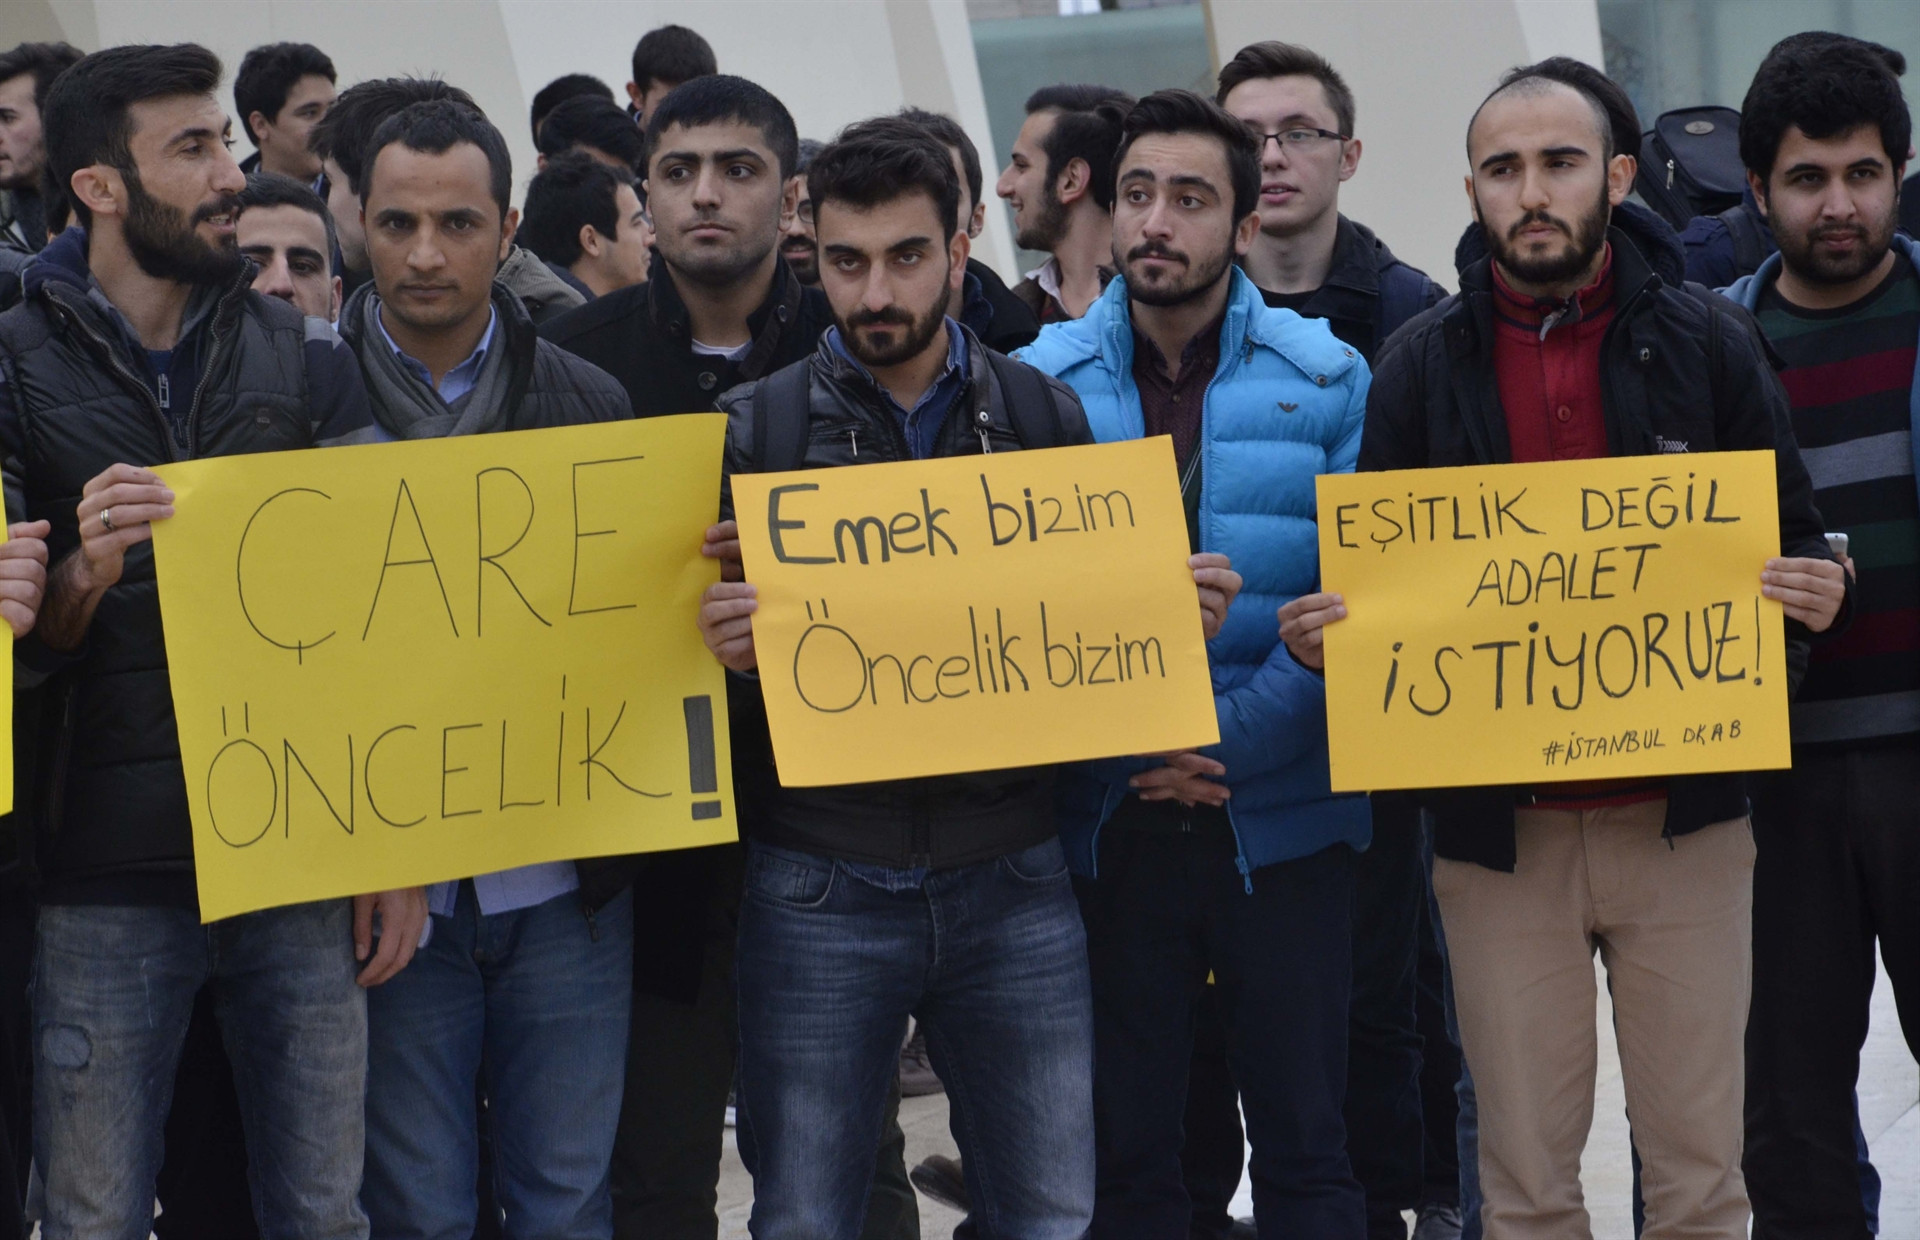 ÇARE
ÖNCELİK!
Emek bizim
Öncelik bizim
EŞİTLİK DEĞİL
ADALET
İSTİYORUZ!
#İSTANBUL DKAB